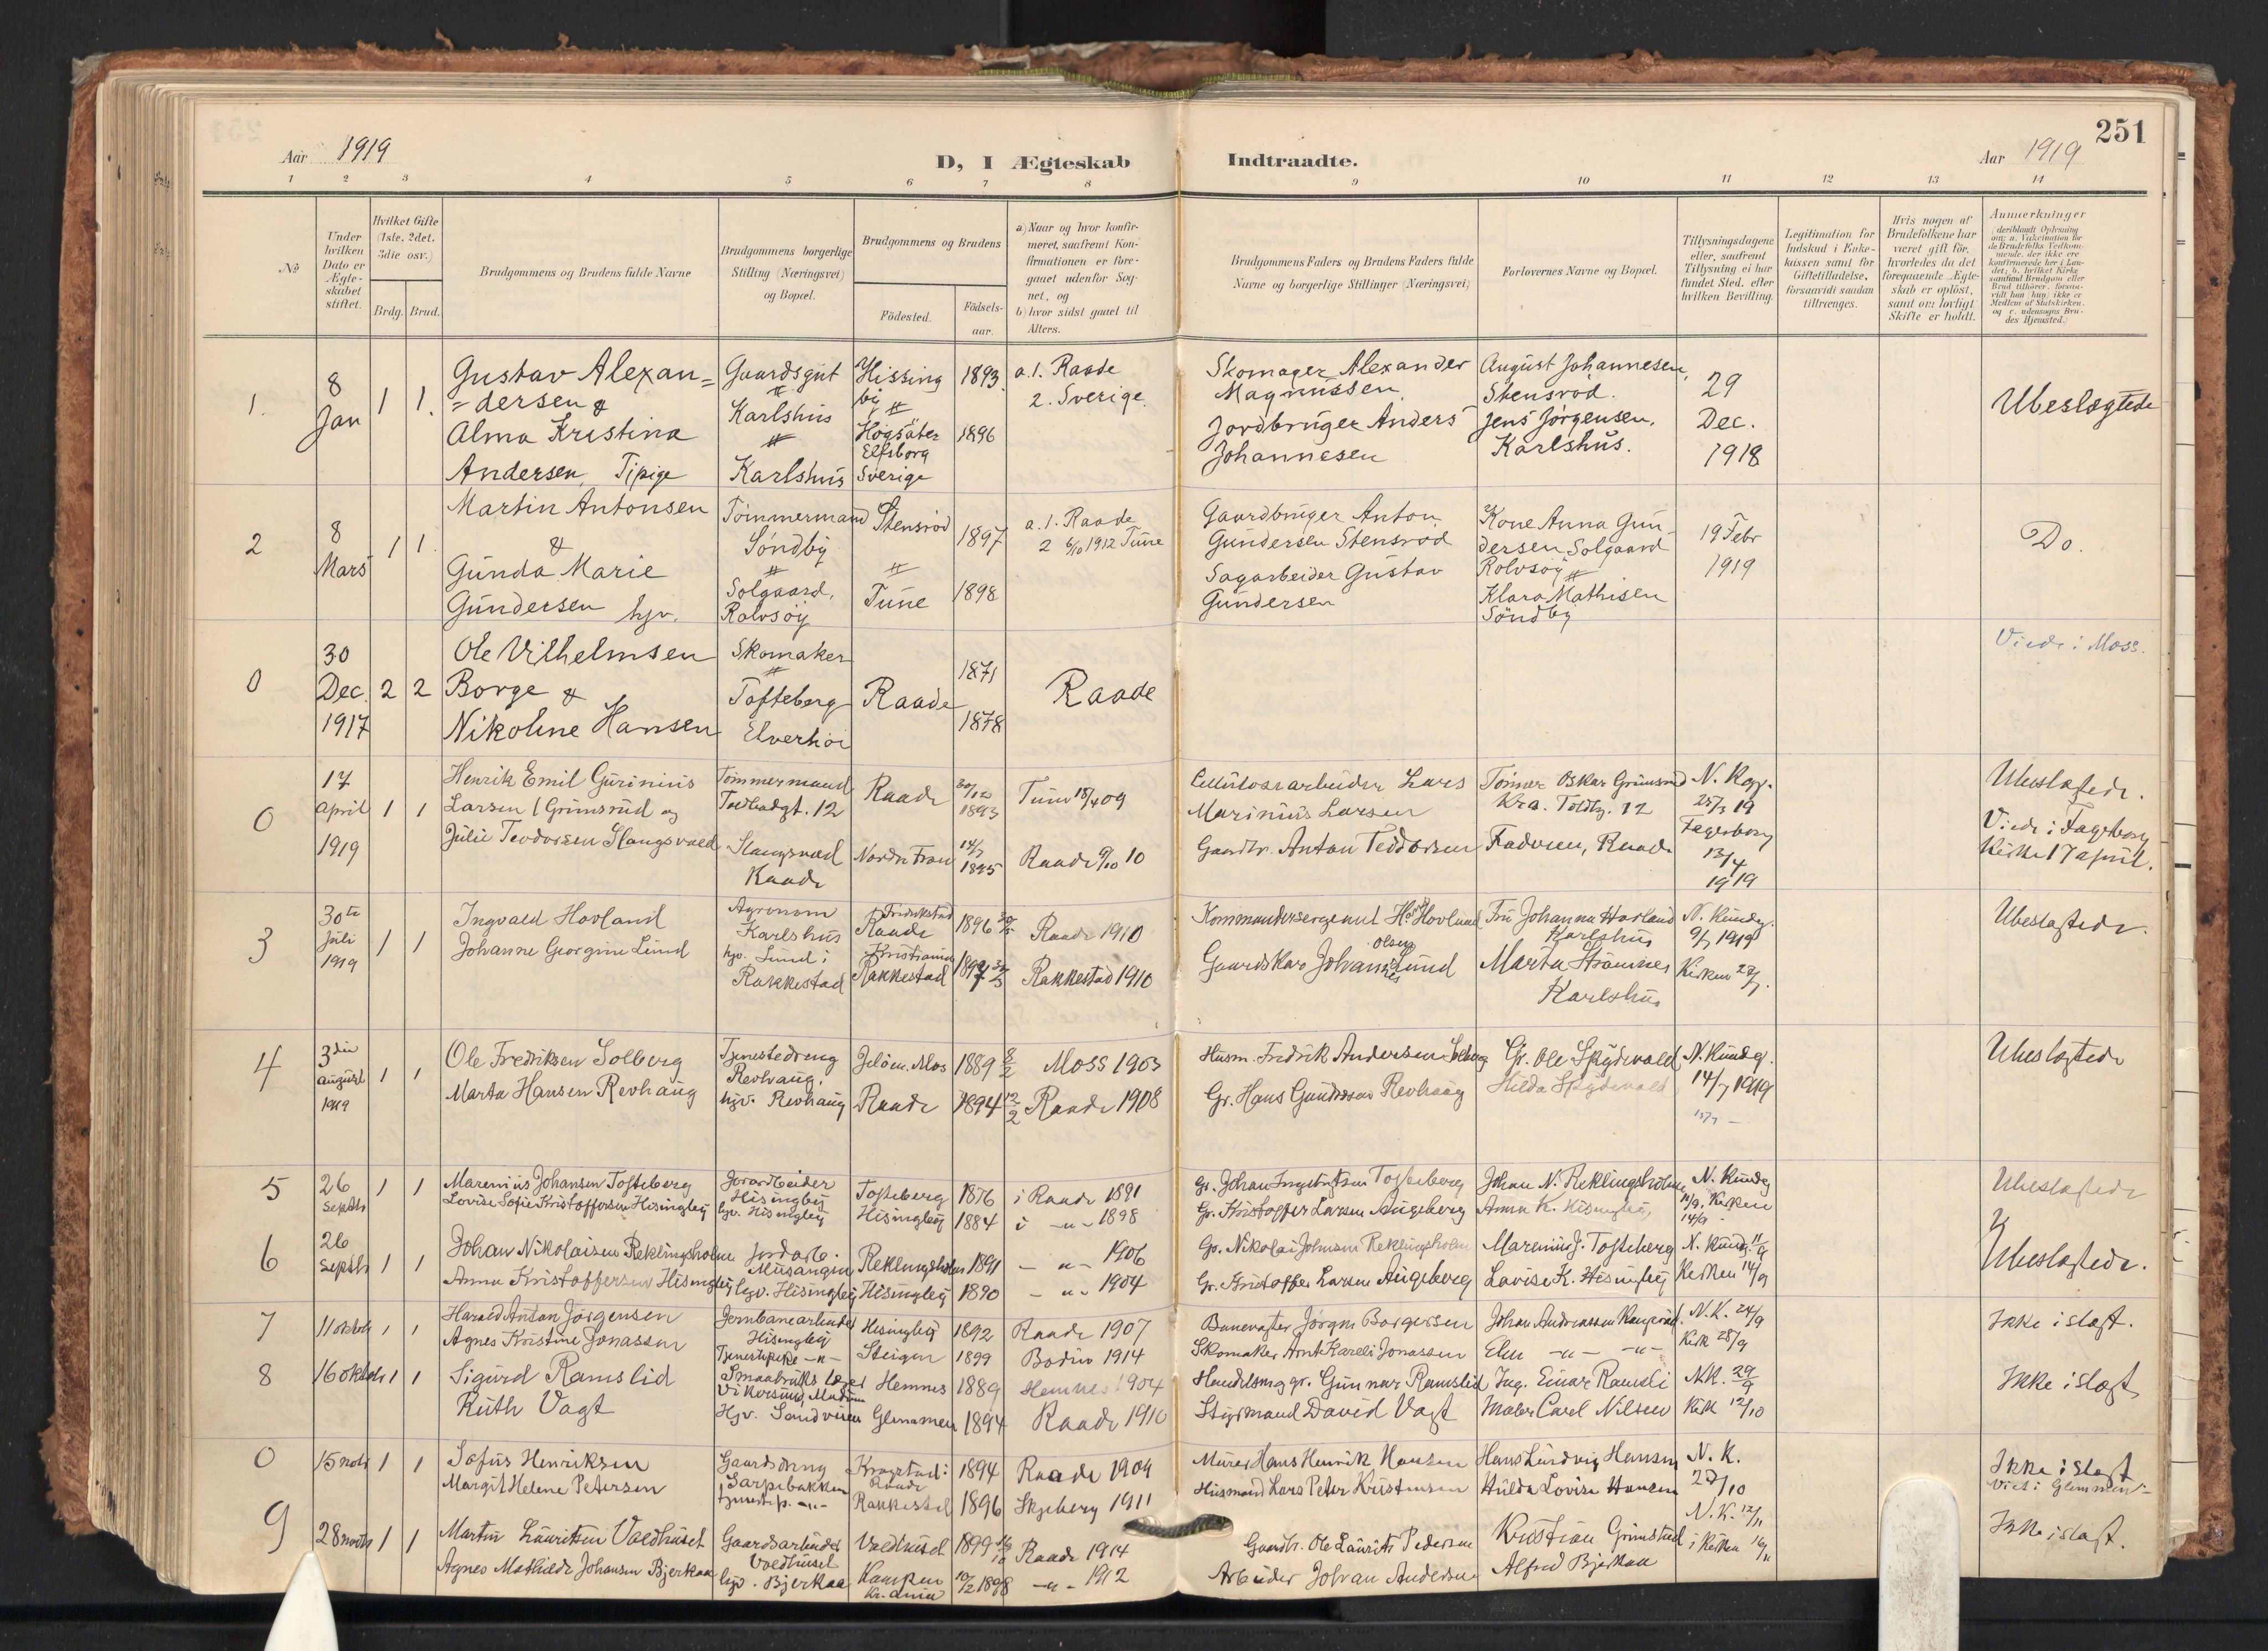 251
Aar 1919
D, I Ægteskab Indtraadte.
Aar 1919
1 2 3 4 5 6 7 8 9 10 11 12 13 14
No
Under hvilken Dato er Ægteskabet stiftet.
Hvilket Gifte (1ste, 2det, 3die osv.)
Brdg. Brud.
Brudgommens og Brudens fulde Navne
Brudgommens borgerlige Stilling (Næringsvei) og Bopæl.
Brudgommens og Brudens
Födested.
Födsels-aar.
a) Naar og hvor konfirmeret, saafremt Konfirmationen er foregaaet udenfor Sognet, og
b) hvor sidst gaaet til Alters.
Brudgommens Faders og Brudens Faders fulde Navne og borgerlige Stillinger (Næringsvei)
Forlovernes Navne og Bopæl.
Tillysningsdagene eller, saafremt Tillysning ei har fundet Sted, efter hvilken Bevilling.
Legitimation for Indskud i Enkekassen samt for Giftetilladelse, forsaavidt saadan tiltrænges.
Hvis nogen af Brudefolkene har været gift før, hvorledes da det foregaaende Ægteskab er oplöst, samt om lovligt Skifte er holdt.
Anmerkninger (deriblandt Oplysning om: a. Vakcination for de Brudefolks Vedkommende, der ikke ere konfirmerede her i Landet; b. hvilket Kirkesamfund Brudgom eller Brud tilhører, forsaavidt han (hun) ikke er Medlem af Statskirken, og c. udensogns Brudes Hjemsted.)
1. 8 Jan 1 1.
Gustav Alexan=
=dersen &
Alma Kristina
Andersen, Tjpige
Gaardsgut
Karlshus
Karlshus
Hissing
by
Högsäter
Elfsborg
Sverige
1893.
1896
a. 1. Raade
2. Sverige.
Skomager Alexander
Magnussen.
Jordbruger Anders
Johannesen
August Johannesen,
Stensröd.
Jens Jörgensen,
Karlshus.
29
Dec.
1918
Ubeslægtede
2 8 Mars 1 1.
Martin Antonsen
&
Gunda Marie
Gundersen hjv.
Tömmermand
Söndby
Solgaard,
Rolvsöy
Stensröd
Tune
1897
1898
a. 1. Raade
2 6/10 1912 Tune
Gaardbruger Anton
Gundersen Stensröd
Sagarbeider Gustav
Gundersen
Kone Anna Gun
dersen Solgaard
Rolvsöy
Klara Mathisen
Söndby
19 Febr
1919
Do.
0 30 Dec. 1917 2 2
Ole Vilhelmsen
Borge &
Nikoline Hansen
Skomaker
Tofteberg
Elverhöi
Raade
1871
1878
Raade
Viede i Moss.
0 17 april 1919 1 1
Henrik Emil Gurinius
Larsen (Grimsrud og
Julie Teodorsen Slangsvold
Tömmermand
Toldbodgt. 12
Slangsvold
Raade
Raade
Nordre Fron
30/12
1893
14/7
1895
Tune 18/4 09
Raade 9/10 10
Cellulosearbeider Lars
Marinius Larsen
Gaardbr. Anton Teodorsen
Tömmer Oskar Grimsrud
Kra. Toldbg. 12
Faderen, Raade
25/3 19
Fagerborg
13/4
1919
Ubeslægtede.
Viede i Fagerborg
Kirke 17 april.
3 30te Juli 1919 1 1
Ingvald Hovland
Johanne Georgine Lund
Agronom
Karlshus
hjv. Lund i
Rakkestad
Fredrikstad
Raade
Kristiania
Rakkestad
1896
1897
Raade 1910
Rakkestad 1910
Kommandersergeant H. Hovland
Olsen
Gaardskar Johannes Lund
Fru Johanna Hovland
Karlshus
Marta Strömnes
Karlshus
N. Kundg.
9/7 1919
Kirken 27/7.
Ubeslægtede.
4 3die august 1919 1 1
Ole Fredriksen Solberg
Marta Hansen Revhaug
Tjenestedreng
Revhaug.
hjv. Revhaug
Jelöen. Mos
Raade
1889 8/2
1894 12/2
Moss 1903
Raade 1908
Husm. Fredrik Andersen Solberg
Gr. Hans Gundersen Revhaug
Gr. Ole Spydevold
Hilda Spydevold
N. Kundg.
14/7 1919
Ubeslægtede
5 26 Septbr 1 1
Marenius Johansen Tofteberg
Lovise Sofie Kristoffersen Hisingby
Jordarbeider
Hisingby
hjv. Hisingby
Tofteberg
Hisingby
1876
1884
i Raade 1891
i -"- 1898
Gr. Kristoffer Larsen Augeberg
Johan N. Reklingsholm
Anna K. Hisingby,
N. Kundg
11/9, Kirken
14/9
Ubeslægtede
6 26 Septbr 1 1
Johan Nikolaisen Reklingsholm
Anna Kristoffersen Hisingby
Jordarb.
hjv. Hisingby
Reklingsholm
Hisingby
1891
1890
-"- 1906
-"- 1904
Gr. Nikolai Johnsen Reklingsholm
Gr. Kristoffer Larsen Augeberg
Marenius J. Tofteberg
Lovise K. Hisingby
N. Kundg. 11/9
Kirken 14/9
Ubeslægtede.
7 11 oktobr 1 1
Harald Anton Jörgensen
Agnes Kristine Jonassen
Jernbanearbeider
Hisingby
Tjenestepike -"-
Hisingby
Steigen
1892
1899
Raade 1907
Bodin 1914
Banevogter Jörgen Borgersen
Skomaker Arnt Kareli Jonassen
Johan Andreassen
Elen -"- -"-
N. K. 24/9
Kirk 28/9
Ikke i slægt.
8 16 oktobr 1 1
Sigurd Ramslid
Ruth Vagt
Smaabruks lærer
Vikersund, Modum
Hjv. Sandviken
Hemnes
Glemmen
1889
1894
Hemnes 1904
Raade 1910
Gunnar Ramslid
Styrmand David Vagt
Ing. Einar Ramsli
Maler Carl Nilsen
NK. 29/9
Kirk 12/10
Ikke i slægt
0 15 novbr 1 1
Sofus Henriksen
Margit Helene Petersen
Gaardsdreng
Sarpebakken
tjenestep. -"-
Krogstad i
Raade
Rakkestad
1894
1896
Raade 1909
Skjeberg 1911
Murer Hans Henrik Hansen
Husmand Lars Peter Kristensen
Hans Ludvig Hansen
Hulda Lovise Hansen
N. K.
27/10
Ikke i slægt
Viet i Glemmen
9 28 novbr 1 1
Martin Lauritsen Voldhuset
Agnes Mathilde Johansen Bjerkaa
Gaardsarbeider
Voldhuset
hjv. Bjerkaa
Voldhuset
Kampen
Kr.ania
1899
10/2 1898
Raade 1914
-"- 1912
Gaardbr. Ole Laurits Pedersen
Arbeider Johan Andersen
Kristian Grimstad
Alfred Bjerkaa
N. K. 12/11
i Kirken 16/11
Ikke i slægt.